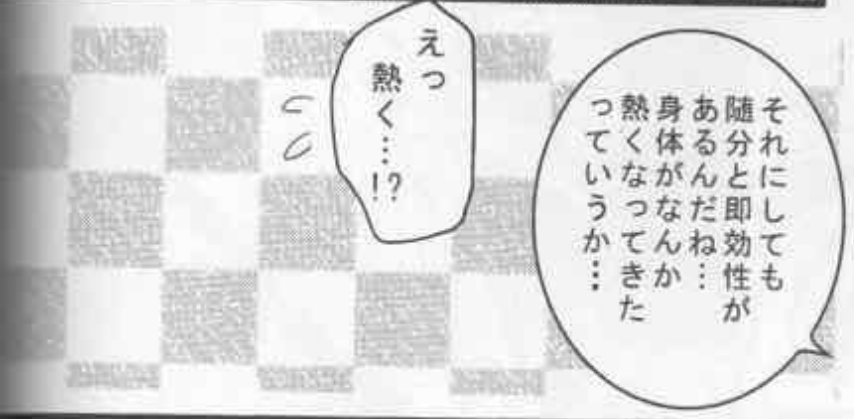 それにしても
随分と即効性が
あるんだね…
身体がなんか
熱くなってきた
っていうか…
えっ
熱く…!?